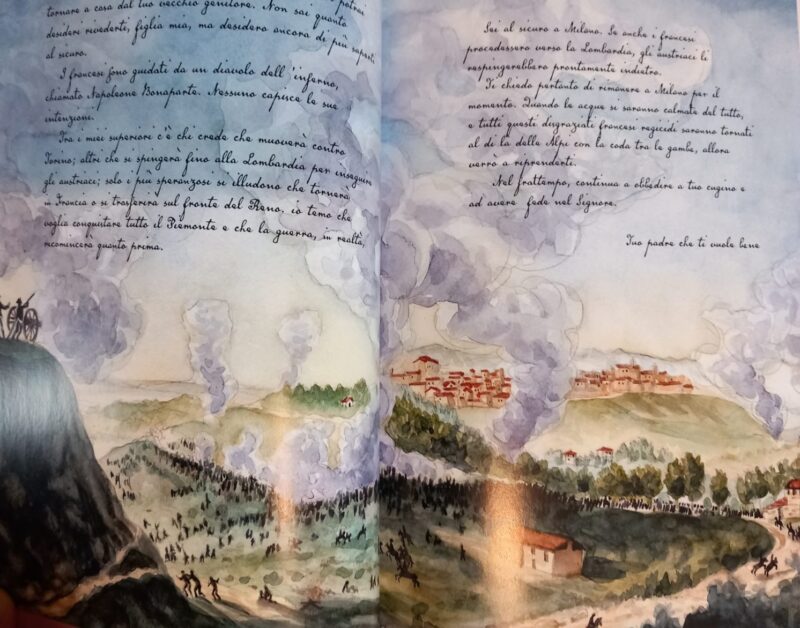 potrai
tornare a casa dal tuo vecchio genitore. Non sai quanto
desideri rivederti, figlia mia, ma desidero ancora di più saperti
al sicuro.
I francesi sono guidati da un diavolo dell'inferno,
chiamato Napoleone Bonaparte. Nessuno capisce le sue
intenzioni.
Tra i miei superiori c'è chi crede che muoverà contro
Torino; altri che si spingerà fino alla Lombardia per inseguire
gli austriaci; solo i più speranzosi si illudono che tornerà
in Francia o si trasferirà sul fronte del Reno. io temo che
voglia conquistare tutto il Piemonte e che la guerra, in realtà,
ricomincerà quanto prima.
Sei al sicuro a Milano. Se anche i francesi
procedessero verso la Lombardia, gli austriaci li
respingerebbero prontamente indietro.
Ti chiedo pertanto di rimanere a Milano per il
momento. Quando le acque si saranno calmate del tutto,
e tutti questi disgraziati francesi regicidi saranno tornati
al di là delle Alpi con la coda tra le gambe, allora
verrò a riprenderti.
Nel frattempo, continua a obbedire a tuo cugino e
ad avere fede nel Signore.
Tuo padre che ti vuole bene